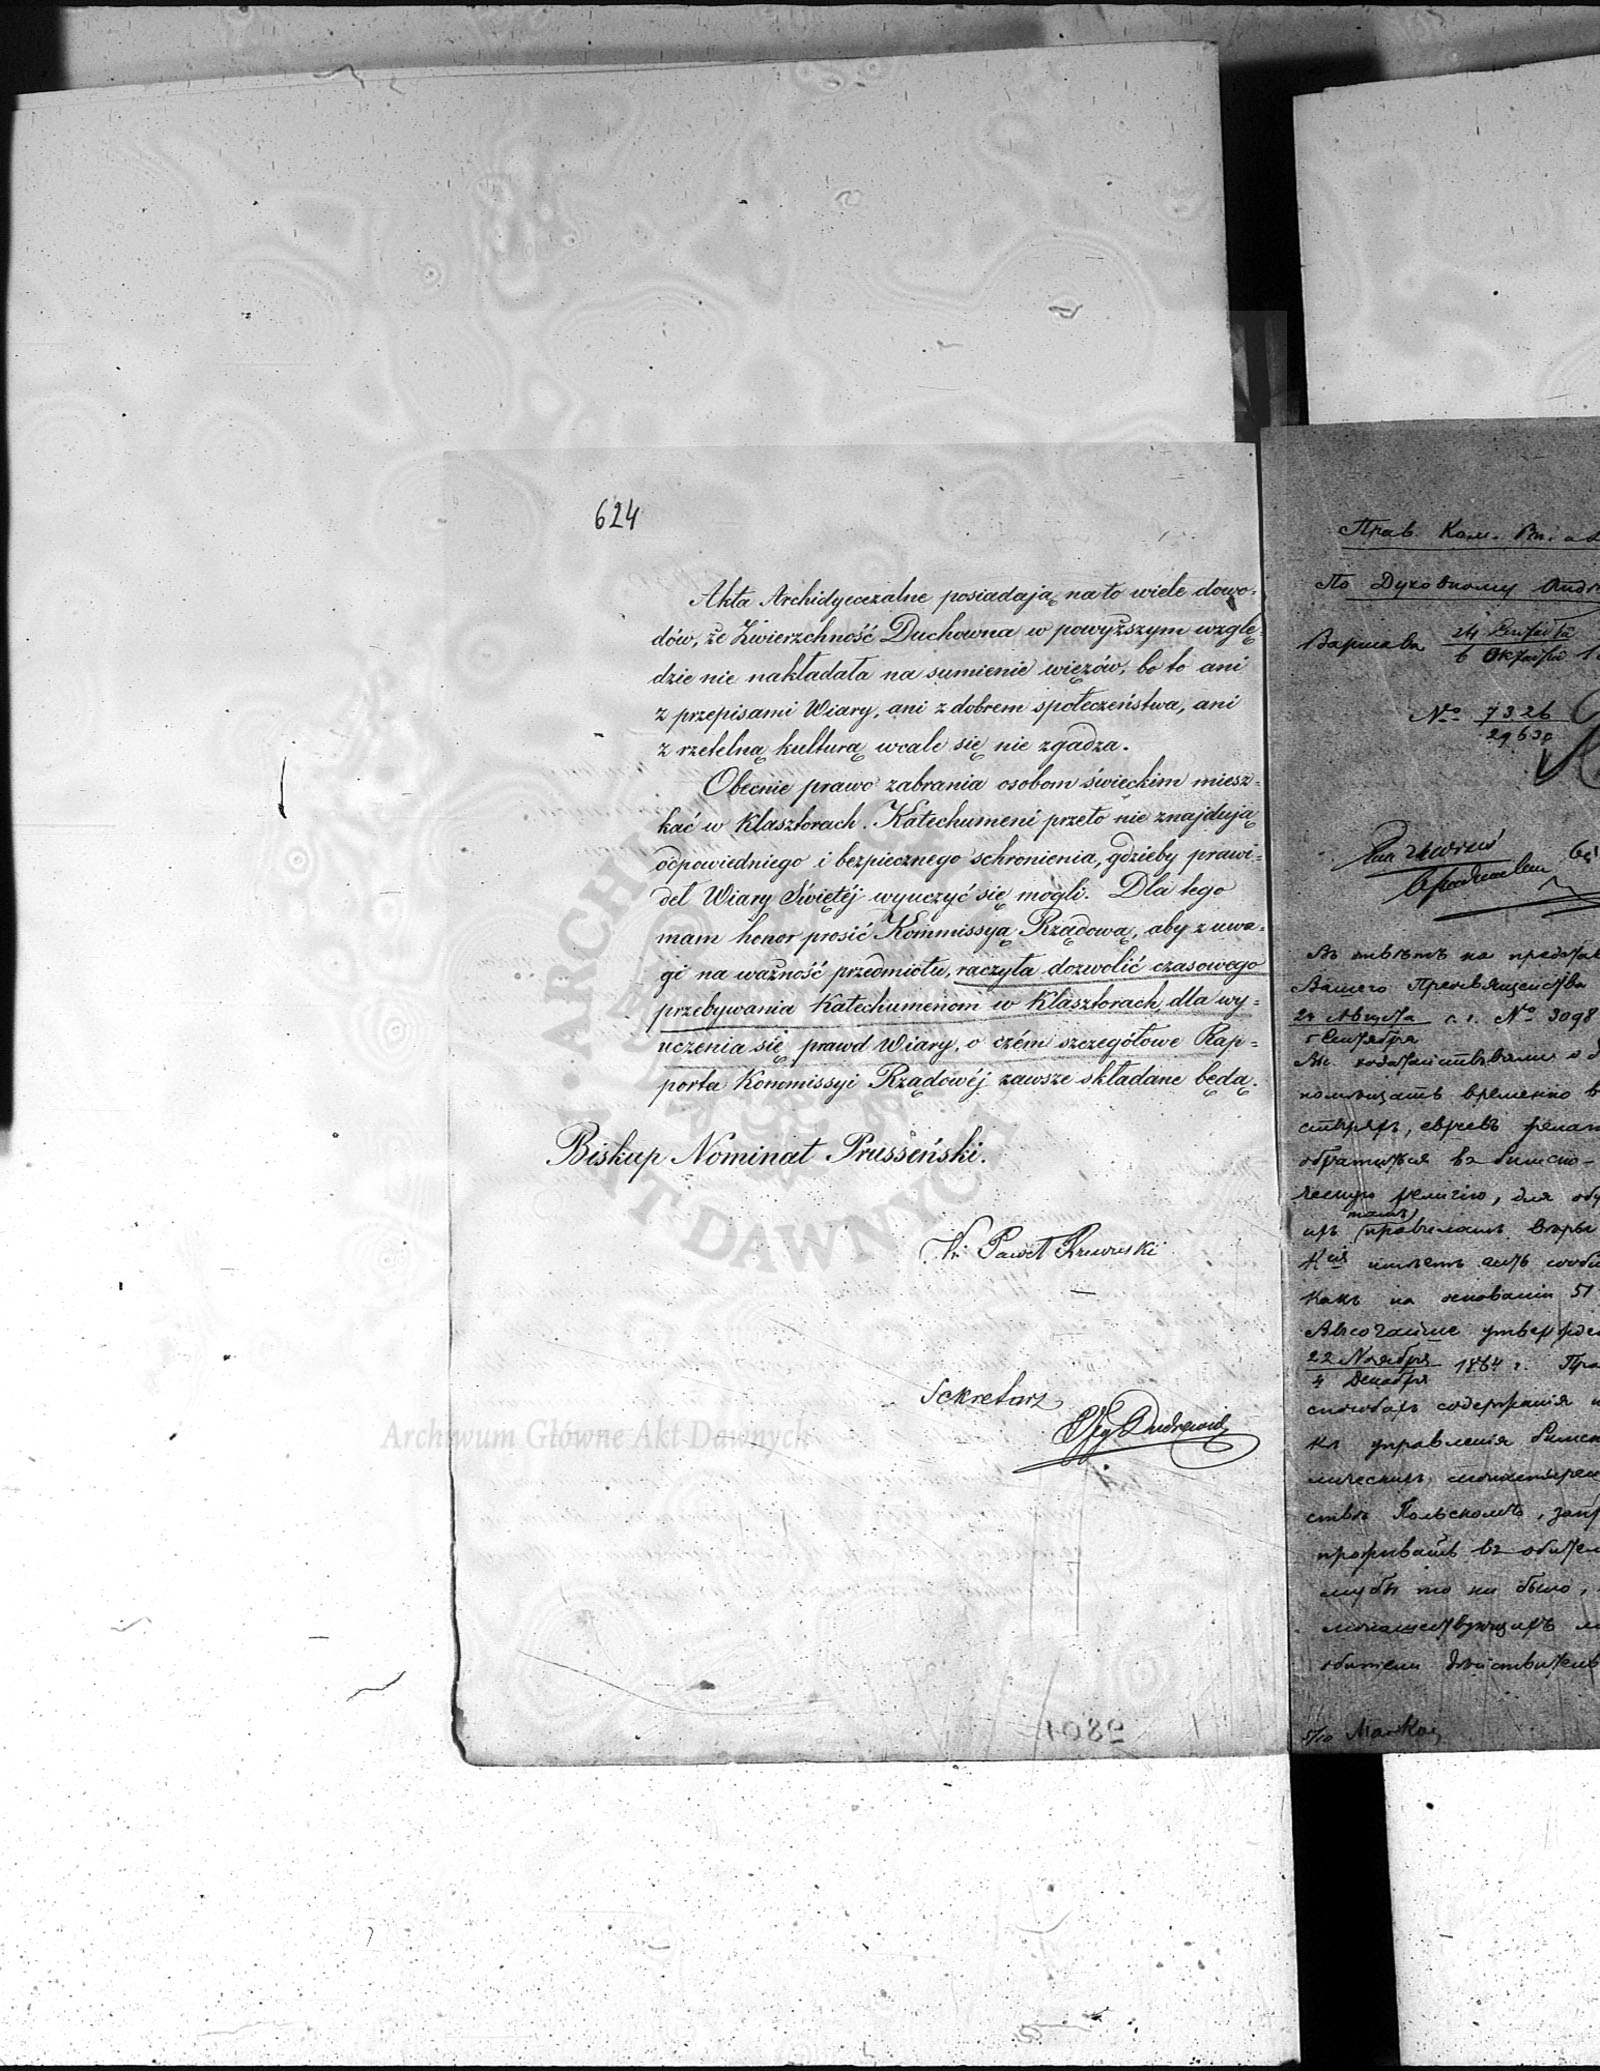 624
Akta Archidyecezalne posiadają na to wiele dowo-
dów, że Zwierzchność Duchowna w powyższym wzglę-
dzie nie nakładała na sumienie więzów, bo to ani
z przepisami Wiary, ani z dobrem społeczeństwa, ani
z rzetelną kulturą wcale się nie zgadza.
Obecnie prawo zabrania osobom świeckim miesz-
kać w Klasztorach. Katechumeni przeto nie znajdują
odpowiedniego i bezpiecznego schronienia, gdzieby prawi-
deł Wiary Świętéj wyuczyć się mogli. Dla tego
mam honor prosić Kommissyą Rządową, aby z uwa-
gi na ważność przedmiotu, raczyła dozwolić czasowego
przebywania Katechumenom w Klasztorach, dla wy-
uczenia się prawd Wiary, o czém szczegółowe Rap-
porta Kommissyi Rządowéj zawsze składane będą.
Biskup Nominat Prusseński.
X. Paweł Rzewuski
Sekretarz
Archiwum Główne Akt Dawnych
ARCHIWUM
AKT DAWNYCH
1089
Прав. Ком. Вн.
По Духовному
Варшава 24 Сентября
6 Октября
№ 7326
Въ отвѣтъ на представ
Вашего Преосвященства
24 Августа с. г. № 3098
5 Сентября
помѣщать временно в
евреевъ желаю
религію, для обу
ихъ тамъ правиламъ вѣры
Кія имѣетъ честь сообщ
какъ на основаніи 51
Высочайше утвержден
22 Ноября 1864 г. Пра
4 Декабря
способахъ содержанія и
управленія Римск
ствѣ Польскомъ, запр
проживать въ обител
бы то ни было,
монашествующихъ
обители дѣйствитель
5/10